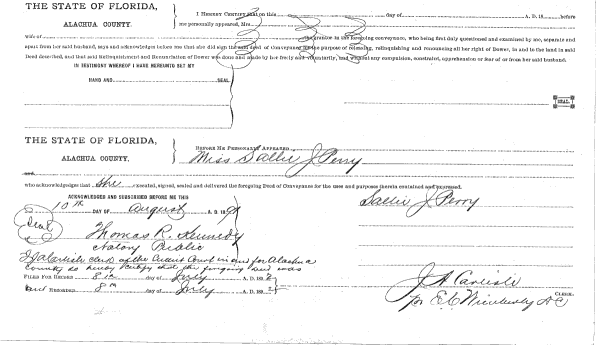 THE STATE OF FLORIDA,
ALACHUA COUNTY.
I HEREBY CERTIFY that on this day of A. D. 18 before
me personally appeared, Mrs.
wife of the grantor in the foregoing conveyance, who being first duly questioned and examined by me, separate and
apart from her said husband, says and acknowledges before me that she did sign the said deed of Conveyance for the purpose of releasing, relinquishing and renouncing all her right of Dower, in and to the land in said
Deed described, and that said Relinquishment and Renunciation of Dower was done and made by her freely and voluntarily, and without any compulsion, constraint, apprehension or fear of or from her said husband.
IN TESTIMONY WHEREOF I HAVE HEREUNTO SET MY
HAND AND SEAL
SEAL.
THE STATE OF FLORIDA,
ALACHUA COUNTY.
BEFORE ME PERSONALLY APPEARED
Miss Sallie J Perry
and
who acknowledges that she executed, signed, sealed and delivered the foregoing Deed of Conveyance for the uses and purposes therein contained and expressed.
ACKNOWLEDGED AND SUBSCRIBED BEFORE ME THIS
Sallie J Perry
10th DAY OF August A. D. 18
Seal
Thomas R. Kennedy
Notary Public
I J A Carlisle clerk of the Circuit Court in and for Alachua
County do hereby certify that the foregoing deed was
FILED FOR RECORD 8th day of July A. D. 189
and RECORDED 8th day of July A. D. 189
J A Carlisle
CLERK.
pr E. C. Wimberly D C